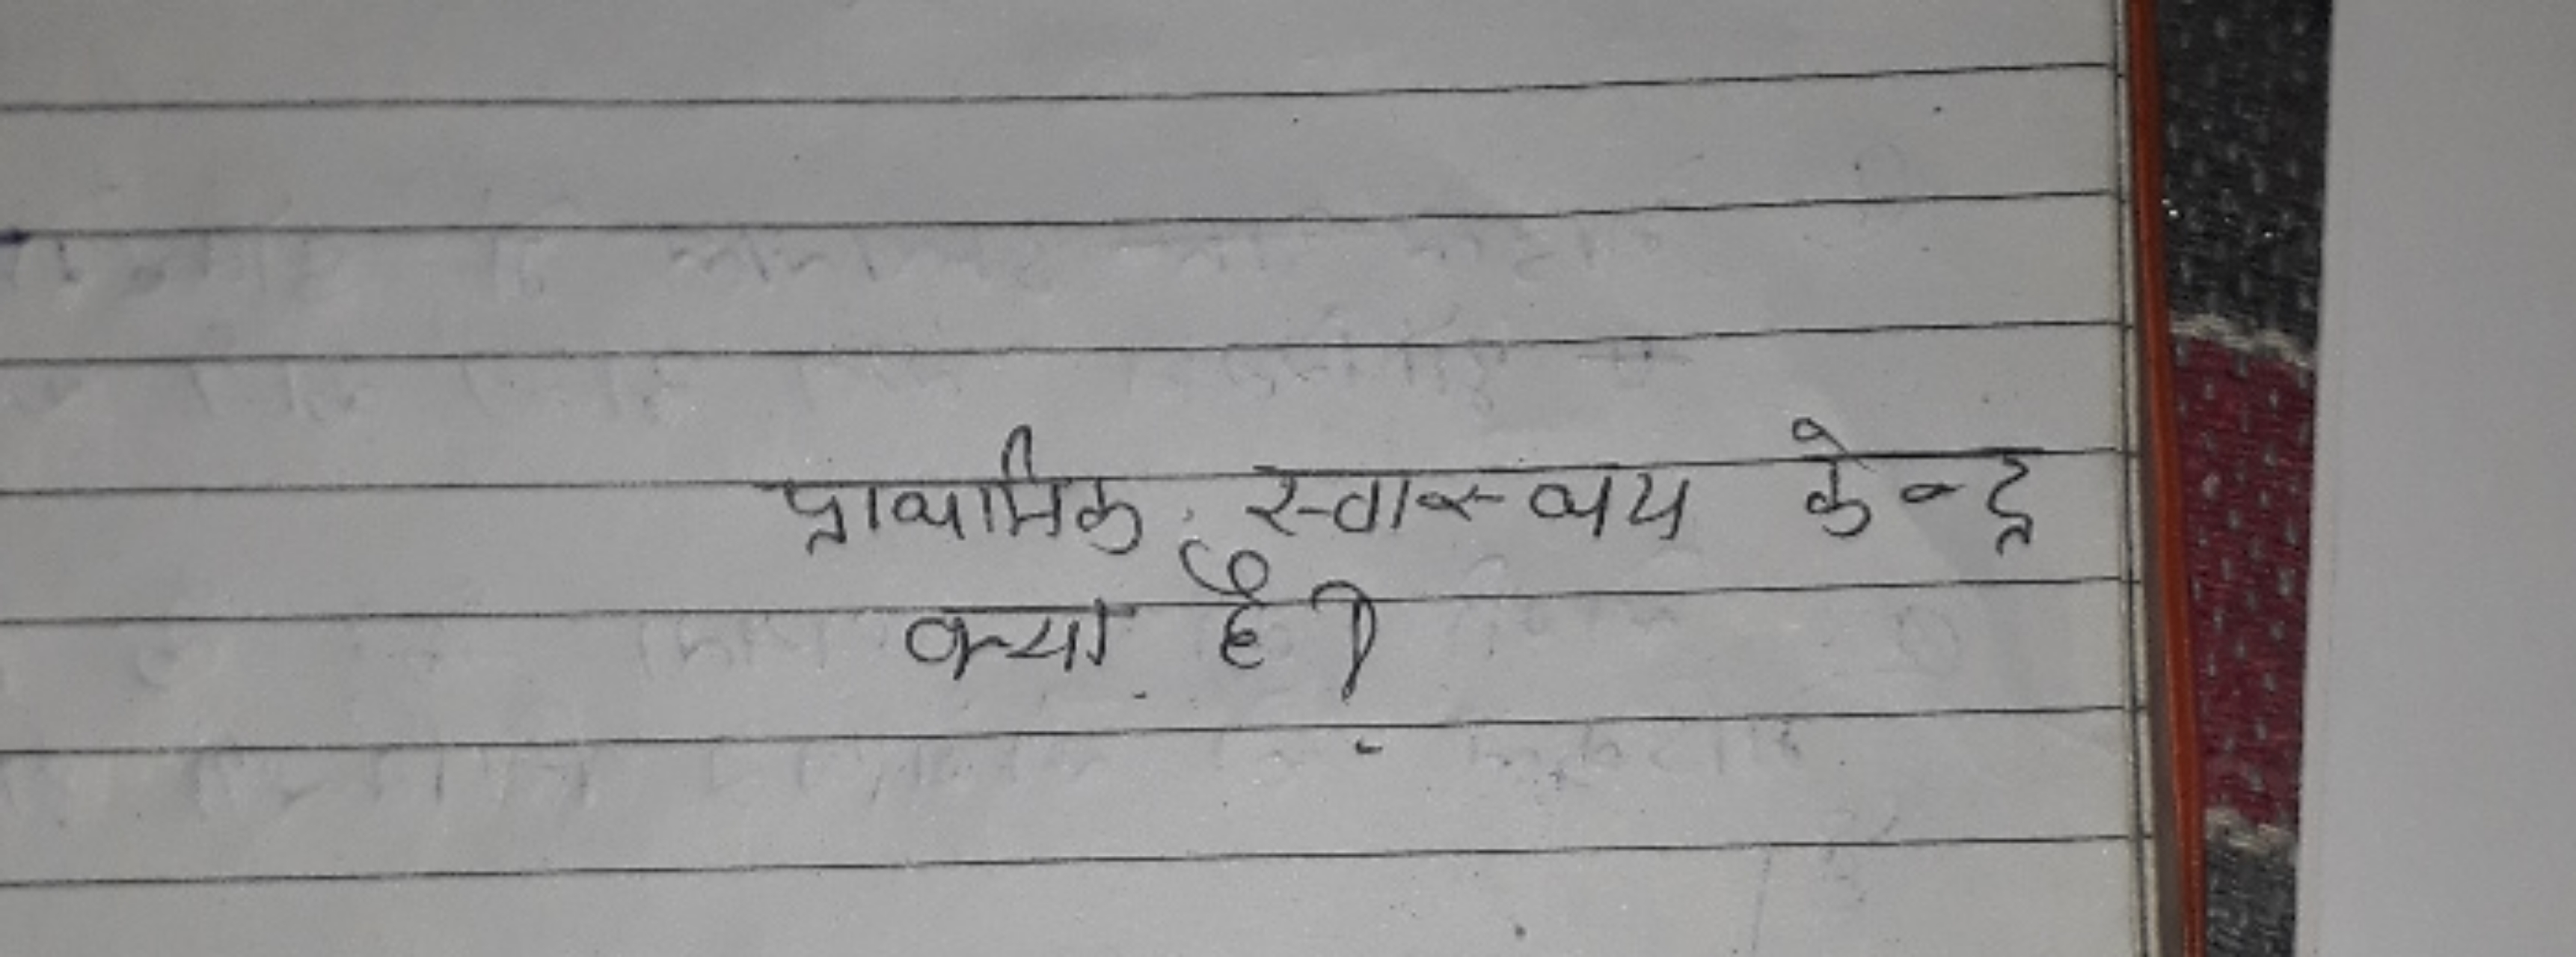 प्राथमिक स्वास्थय केन्द्र
क्या है?